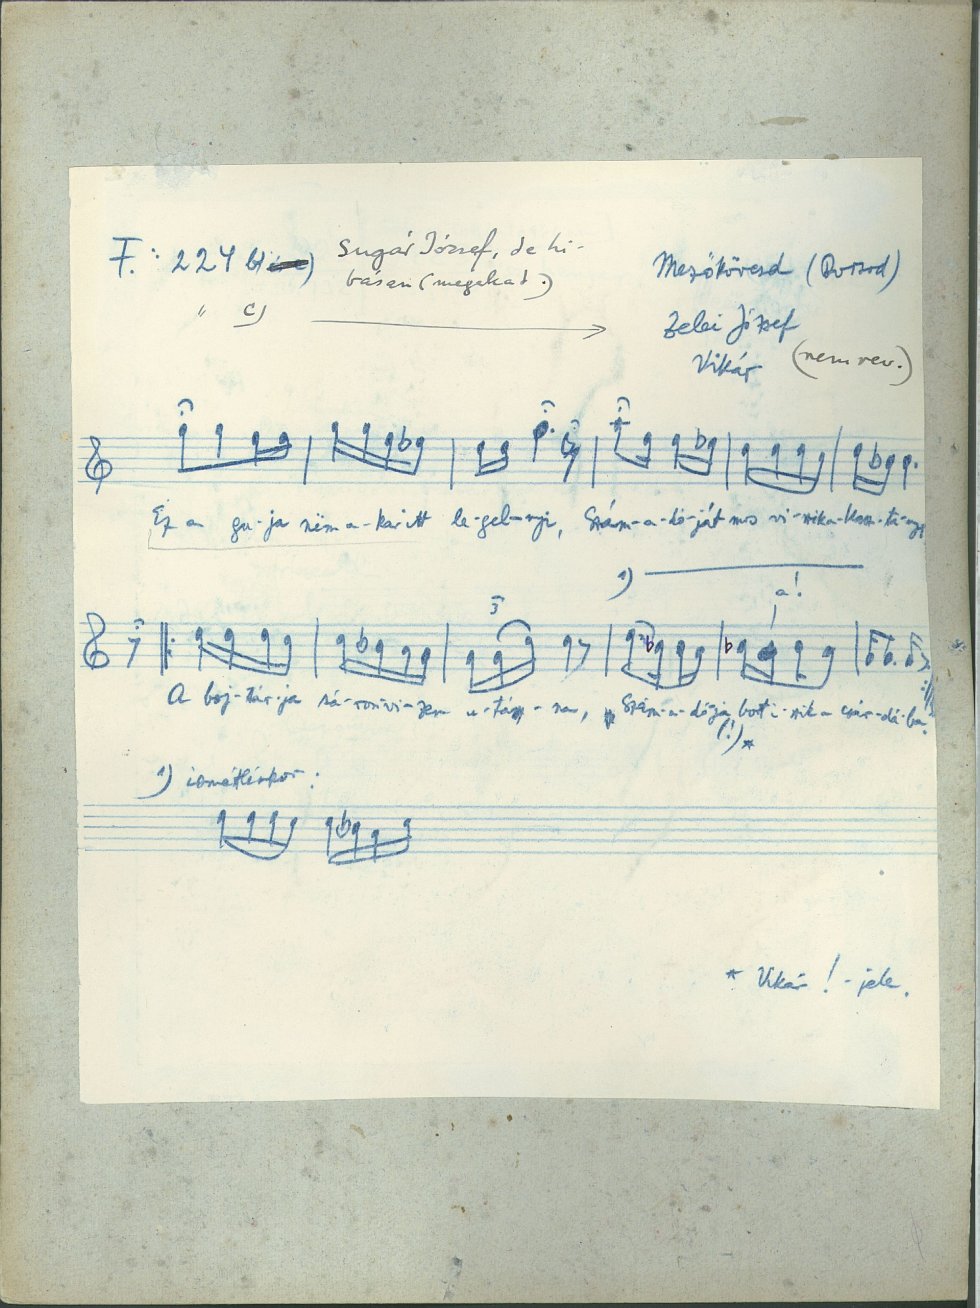 F.: 224 b)
Sugár József, de hi-
básan (megakad.)
" c)
Mezőkövesd (Borsod)
Zelei József
Vikár
(nem rev.)
Ez a gu-ja nëm a-karitt le-gel-nyi, Szám-a-dó-ját mos vi-szik a-kasz-ta-nyi
1)
a!
3
A boj-tár-ja sá-ron vi-zen u-tán-na, Szám-a-dó-ja bort i-szik a csár-dá-ba.
(!)*
1) ismétléskor:
* Vikár ! -jele.